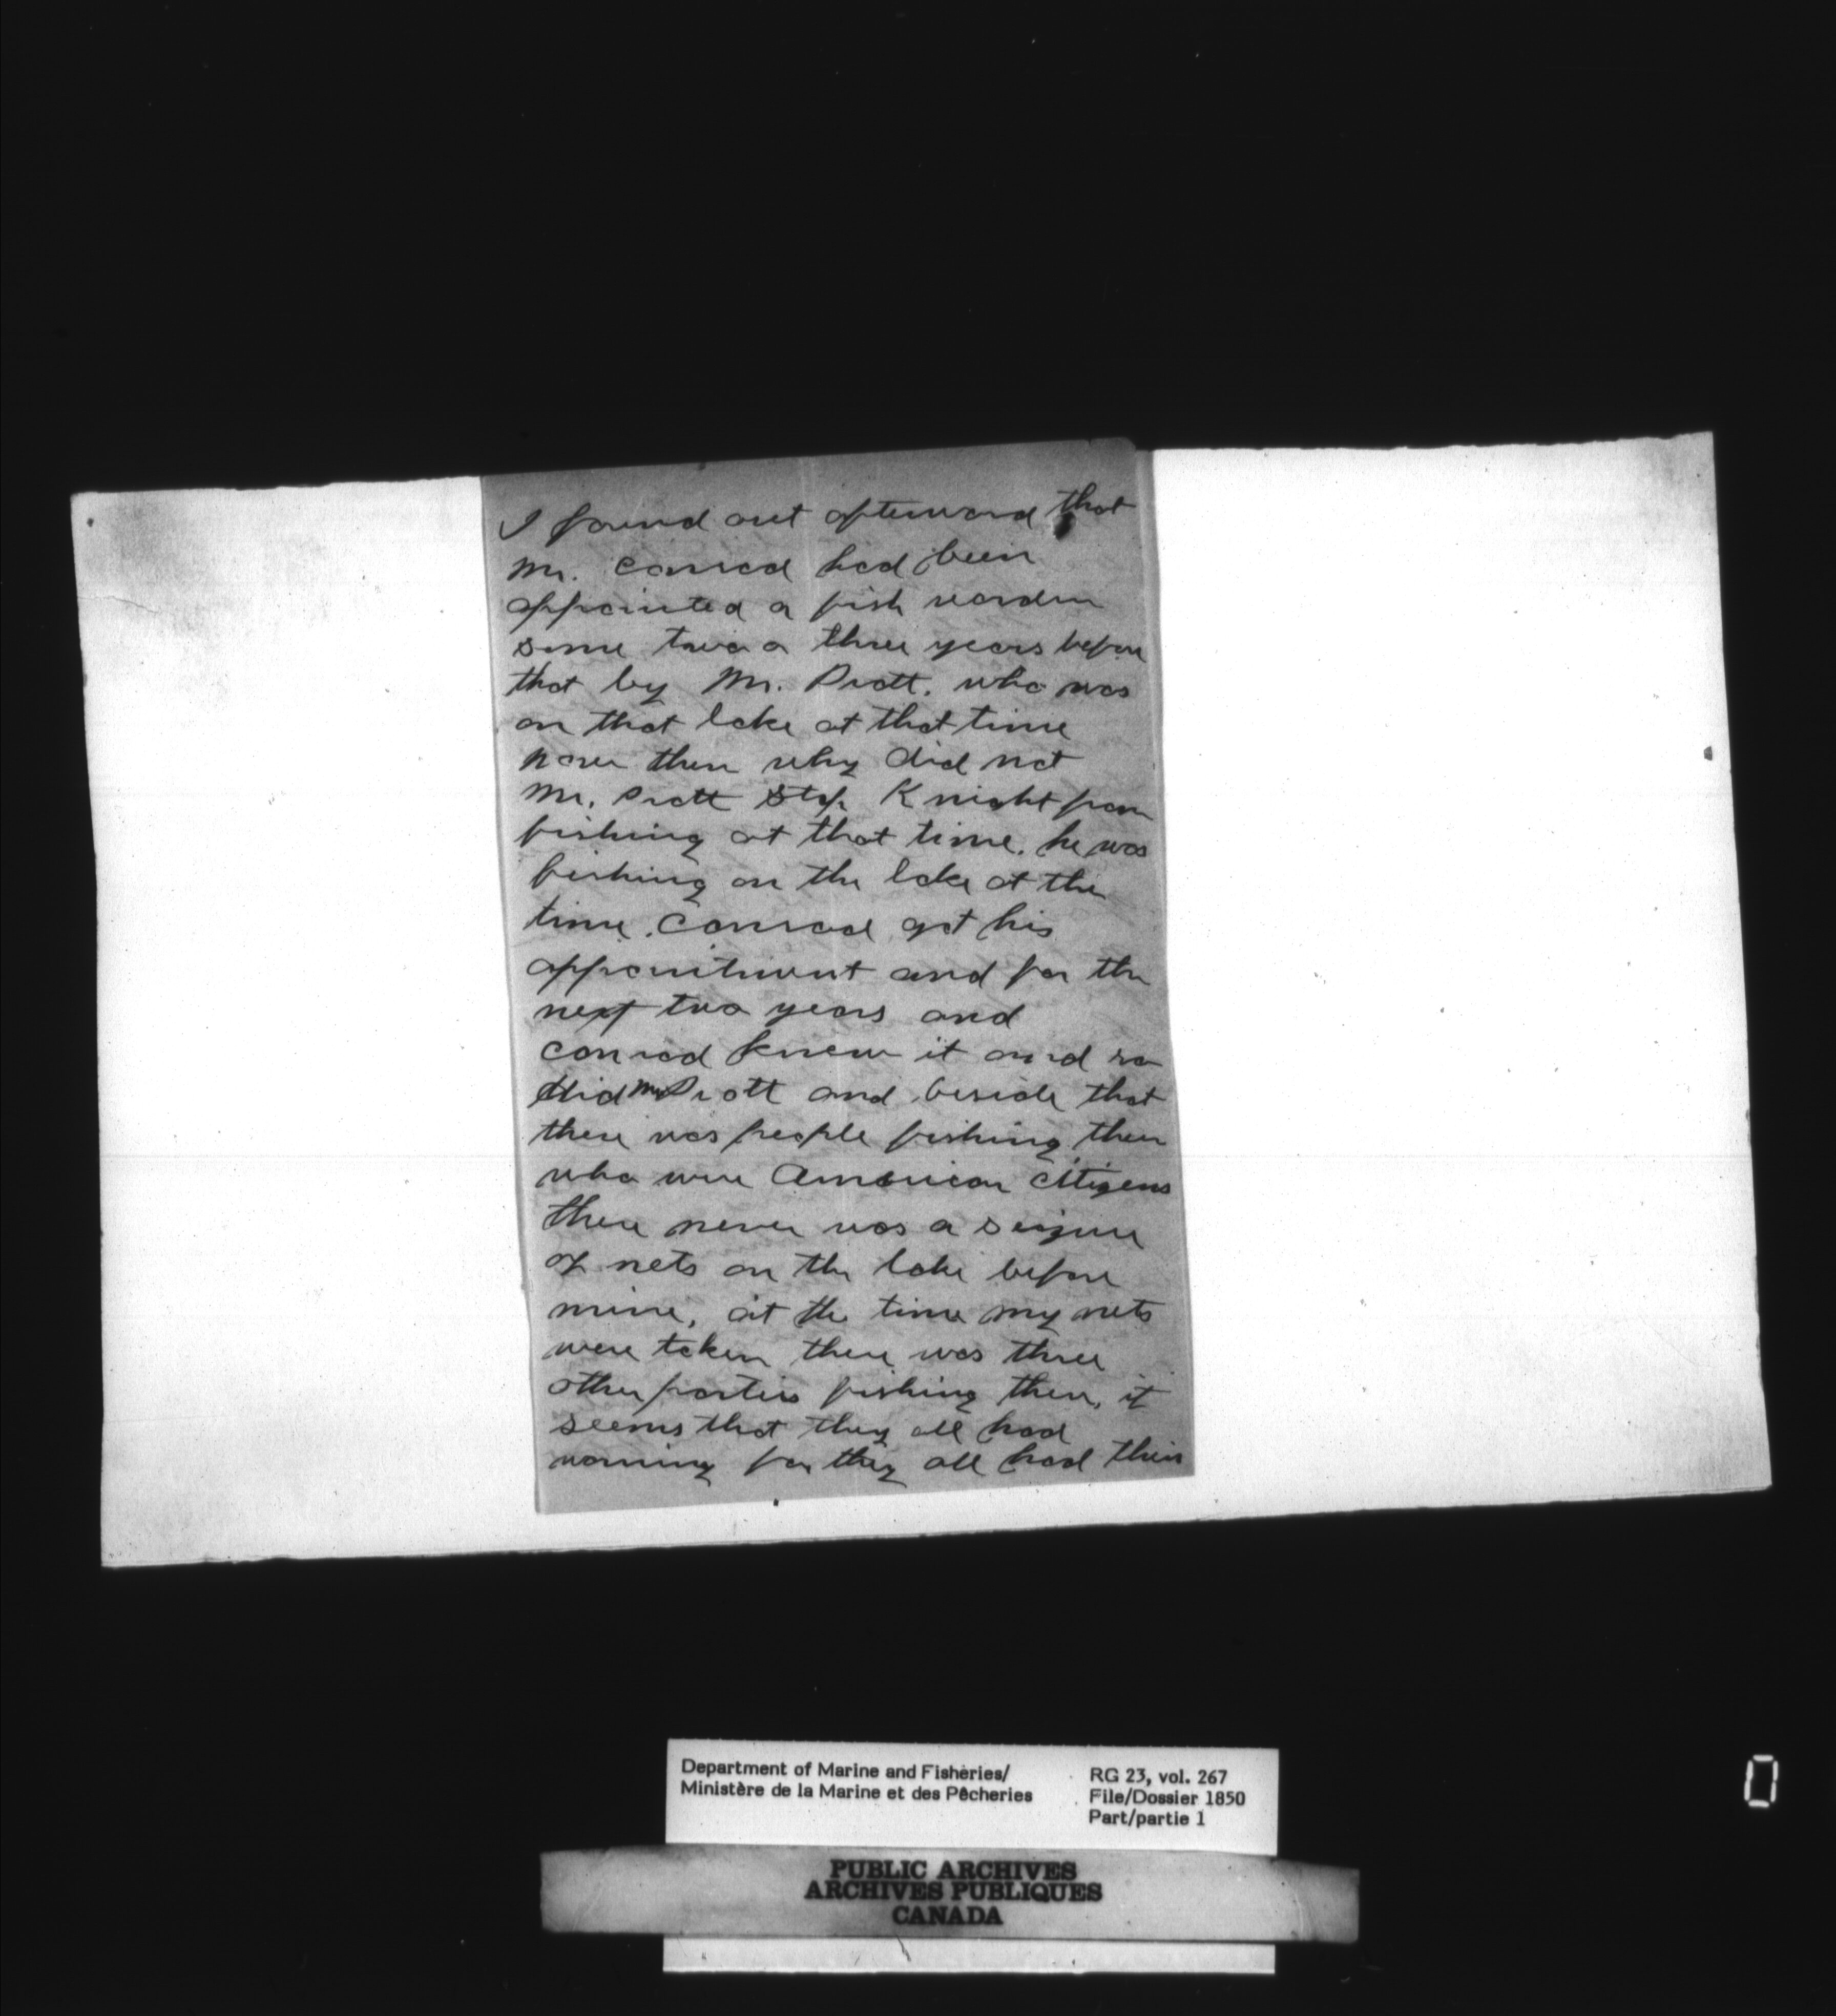 I found out afterward that
Mr. Conrad had been
appointed a fish warden
some two or three years before
that by Mr. Pratt. who was
on that lake at that time
now then why did not
Mr. Pratt stop Knight from
fishing at that time. he was
fishing on the lake at the
time. Conrad got his
appointment and for the
next two years and
Conrad knew it and so
did Mr Pratt and beside that
there was people fishing there
who were American citizens
there never was a seizure
of nets on the lake before
mine, at the time my nets
were taken there was three
other parties fishing there, it
seems that they all had
warning for they all had their
Department of Marine and Fisheries/
Ministère de la Marine et des Pêcheries
RG 23, vol. 267
File/Dossier 1850
Part/partie 1
PUBLIC ARCHIVES
ARCHIVES PUBLIQUES
CANADA
0